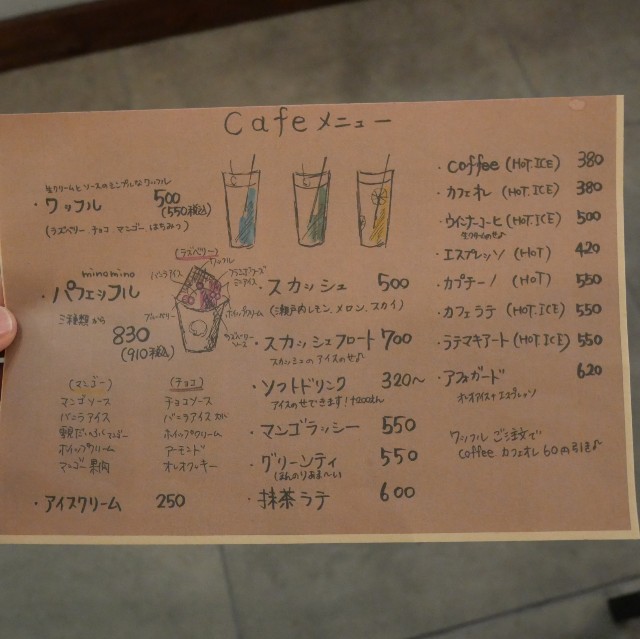 Cafe メニュー
生クリームとソースのシンプルなワッフル
・ワッフル 500
(550税込)
(ラズベリー、チョコ、マンゴー、はちみつ)
minomino
・パフェッフル
三種類から
830
(910税込)
(ラズベリー)
ワッフル
バニラアイス
ブルーベリー
ホイップクリーム
ラズベリーソース
(マンゴー)
マンゴソース
バニラアイス
ホイップクリーム
マンゴ果肉
(チョコ)
チョコソース
バニラアイス
ホイップクリーム
アーモンド
オレオクッキー
・アイスクリーム 250
・スカッシュ 500
(三瀬戸内レモン、メロン、スカイ)
・スカッシュフロート 700
スカッシュのアイスのせ♪
・ソフトドリンク 320〜
アイスのせできます!+200えん
・マンゴラッシー 550
・グリーンティ 550
(ほんのりあま〜い)
・抹茶ラテ 600
・coffee (HOT.ICE) 380
・カフェオレ (HOT.ICE) 380
・ウインナーコーヒ (HOT.ICE) 500
生クリームのせ♪
・エスプレッソ (HOT) 420
・カプチーノ (HOT) 550
・カフェラテ (HOT.ICE) 550
・ラテマキアート (HOT.ICE) 550
・アフォガード 620
ワッフルご注文で
coffee カフェオレ 60円引き♪